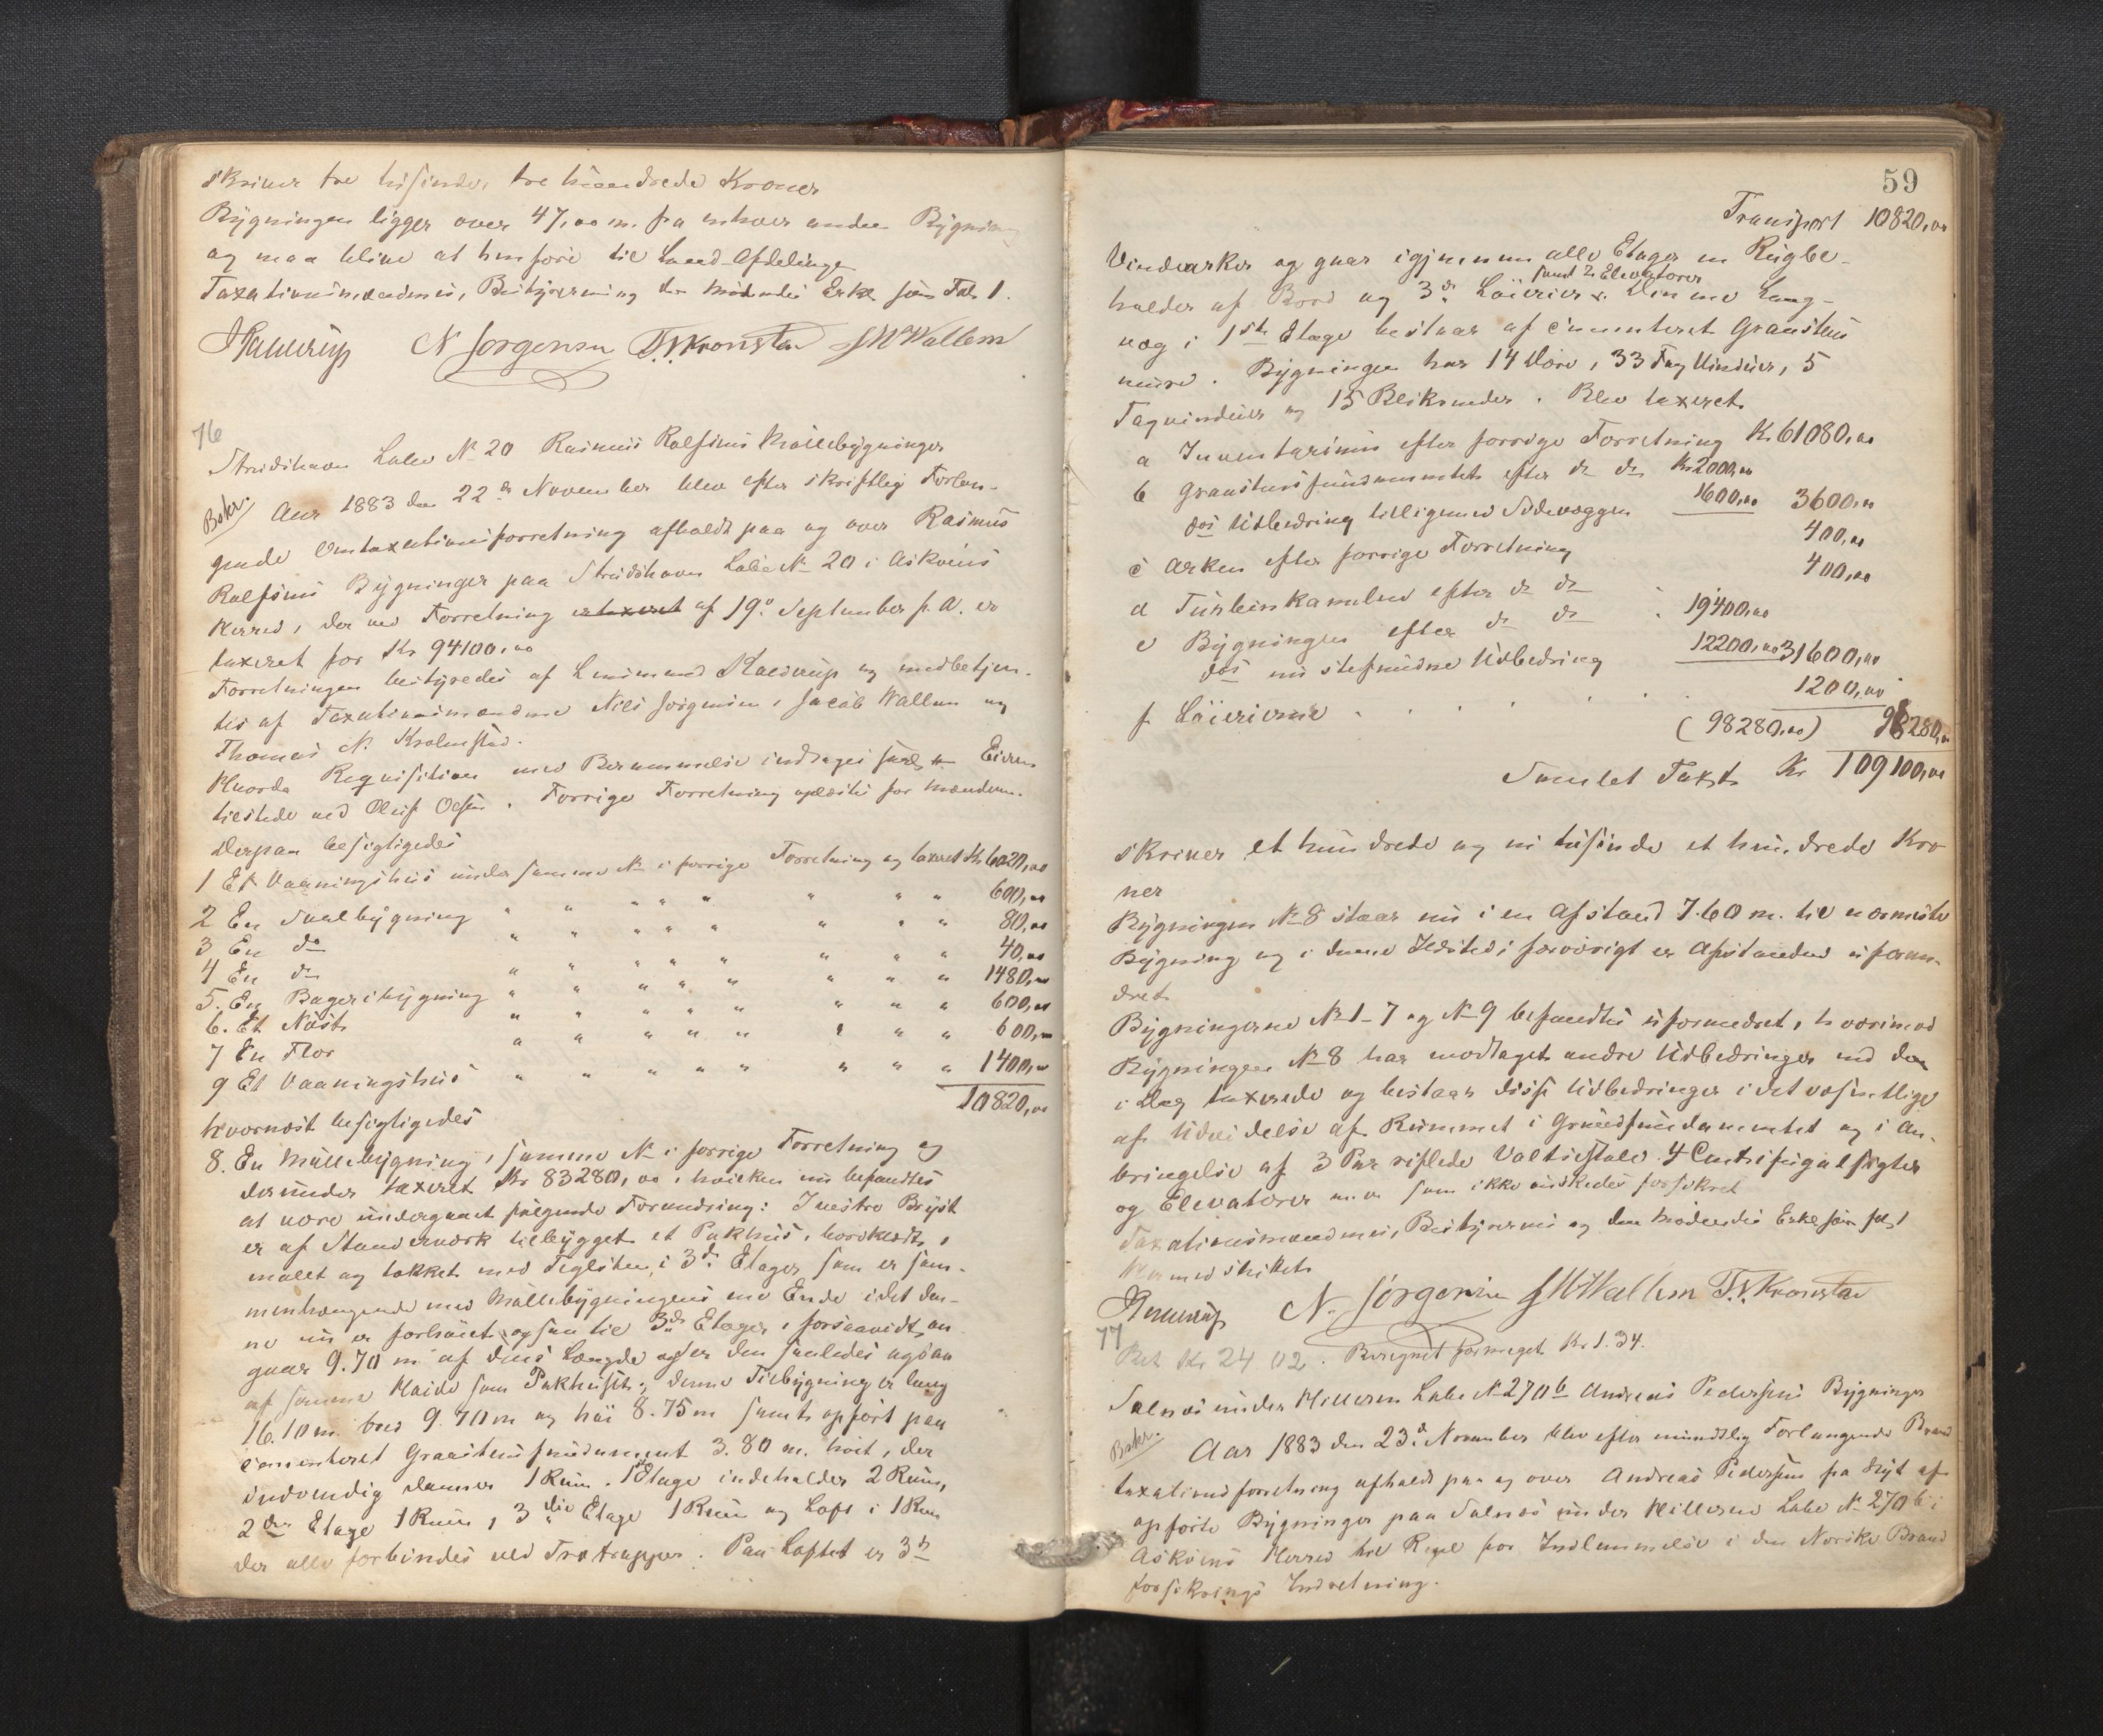 skriver tre tusinde, tre hundrede Kroner
Bygningen ligger over 47,00 m. fra enhver anden Bygning
og maa blive at henføre til Land-Afdelingen
Taxationsmændenes, Bestyrerens og den mødendes Erkl. som Fol. 1.
N Jørgensen T. N. Kronstad J M Wallem
76
Strudshavn Løbe No 20 Rasmus Rolfsens Møllebygninger
Bskr.
Aar 1883 den 22de November blev efter skriftlig Forlan-
gende Omtaxationsforretning afholdt paa og over Rasmus
Rolfsens Bygninger paa Strudshavn Løbe No 20 i Askøens
Herred, der ved Forretning er taxeret af 19de September f. A. er
taxeret for Kr 94100,00
Forretningen bestyredes af Lensmand og medbetjen-
tes af Taxationsmændene Nils Jørgensen, Jacob Wallem og
Thomas N. Kronstad.
Hvorda Requisition med Berammelse indtages Eieren
tilstede ved Oluf Olsen. Forrige Forretning oplæstes for Mændene.
Derpaa besigtigedes
1 Et Vaaningshus under samme No i forrige Forretning og taxeret Kr 6020,00
2 En Svalbygning " " " " " " " " 600,00
3 En do " " " " " " " " 80,00
4 En do " " " " " " " " 40,00
5. En Bageribygning " " " " " " " " 1480,00
6. Et Nøst " " " " " " " " 600,00
7 En Flor " " " " " " " " 600,00
9 Et Vaaningshus " " " " " " " " 1400,00
10820,00
hvornæst besigtigedes
8. En Møllebygning, samme No i forrige Forretning og
derunder taxeret Kr 83280,00, hvilken nu befandtes
at være undergaaet følgende Forandring: I vestre Bryst
er af Standerværk tilbygget et Pakhus, bordklædt,
malet og takket med Teglsten, i 3de Etager, som er sam-
menhængende med Møllebygningens ene Ende idet den-
ne nu er forhøiet ogsaa til 3de Etager, forsaavidt an-
gaar 9.70 m af dens Længde og er den saaledes ogsaa
af samme Høide som Pakhuset; denne Tilbygning er lang
16.10 m. bred 9.70 m og høi 8.75 m samt opført paa
cementeret Graastensfundament 3.80 m. høit, der
indvendig danner 1 Rum. 1ste Etage indeholder 2 Rum,
2den Etage 1 Rum, 3die Etage 1 Rum og Loft i 1 Rum
der alle forbindes ved Trætrapper. Paa Loftet er 3de
59
Transport 10820,00
Vindearker og gaar igjennem alle Etager en Rugbe-
holder af Bord og 3de Løierier samt 2 Elevatorer. Den ene Lang-
væg i 1ste Etage bestaar af cementeret Graastens
mure. Bygningen har 14 Døre, 33 Fag Vinduer, 5
Tagvinduer og 15 Blikrender. Blev taxeret
a Inventarium efter forrige Forretning Kr 61080,00
b Graastensfundamentet efter do do Kr 2000,00
dets Udbedring tilligemed Sidevæggen 1600,00 3600,00
c Arken efter forrige Forretning 400,00
d Turbinkammeret efter do do 400,00
e Bygningen efter do do 19400,00
dens nu stefundne Udbedring 12200,00 31600,00
f. Løierierne . . . . . 1200,00
(98280,00) 98280,00
Samlet Taxt Kr 109100,00
skriver et hundrede og ni tusinde et hundrede Kro-
ner
Bygningen No 8 staar nu i en Afstand 7.60 m. til nærmeste
Bygning og i denne Ildsted; forøvrigt er Afstanden uforan-
dret.
Bygningerne No 1-7 og No 9 befandtes uforandret, hvorimod
Bygningen No 8 har modtaget andre Udbedringer end den
i Dag taxerede og bestaar disse Udbedringer i det væsentlige
af Udvidelse af Rummet i Grundfundamentet og i An-
bringelse af 3 Par riflede Valsestole. 4 Centrifugalsigter
og Elevatorer m.v. som ikke ønskedes forsikret
Taxationsmændenes, Bestyrerens og den mødendes Erkl. som fol. 1
Hermed sluttet
N. Jørgensen J M Wallem T. N. Kronstad
77
Bet Kr 24 02. Beregnet formeget Kr 1.34.
Salnæs under Hilleren Løbe No 270 b Andreas Pedersens Bygninger
Bskr.
Aar 1883 den 23de November blev efter mundtlig Forlangende Brand
taxationsforretning afholdt paa og over Andreas Pedersens fra Nyt af
opførte Bygninger paa Salnæs under Hilleren Løbe No 270 b i
Askøens Herred til Regel for Indlemmelse i den Norske Brand
forsikrings Indretning.